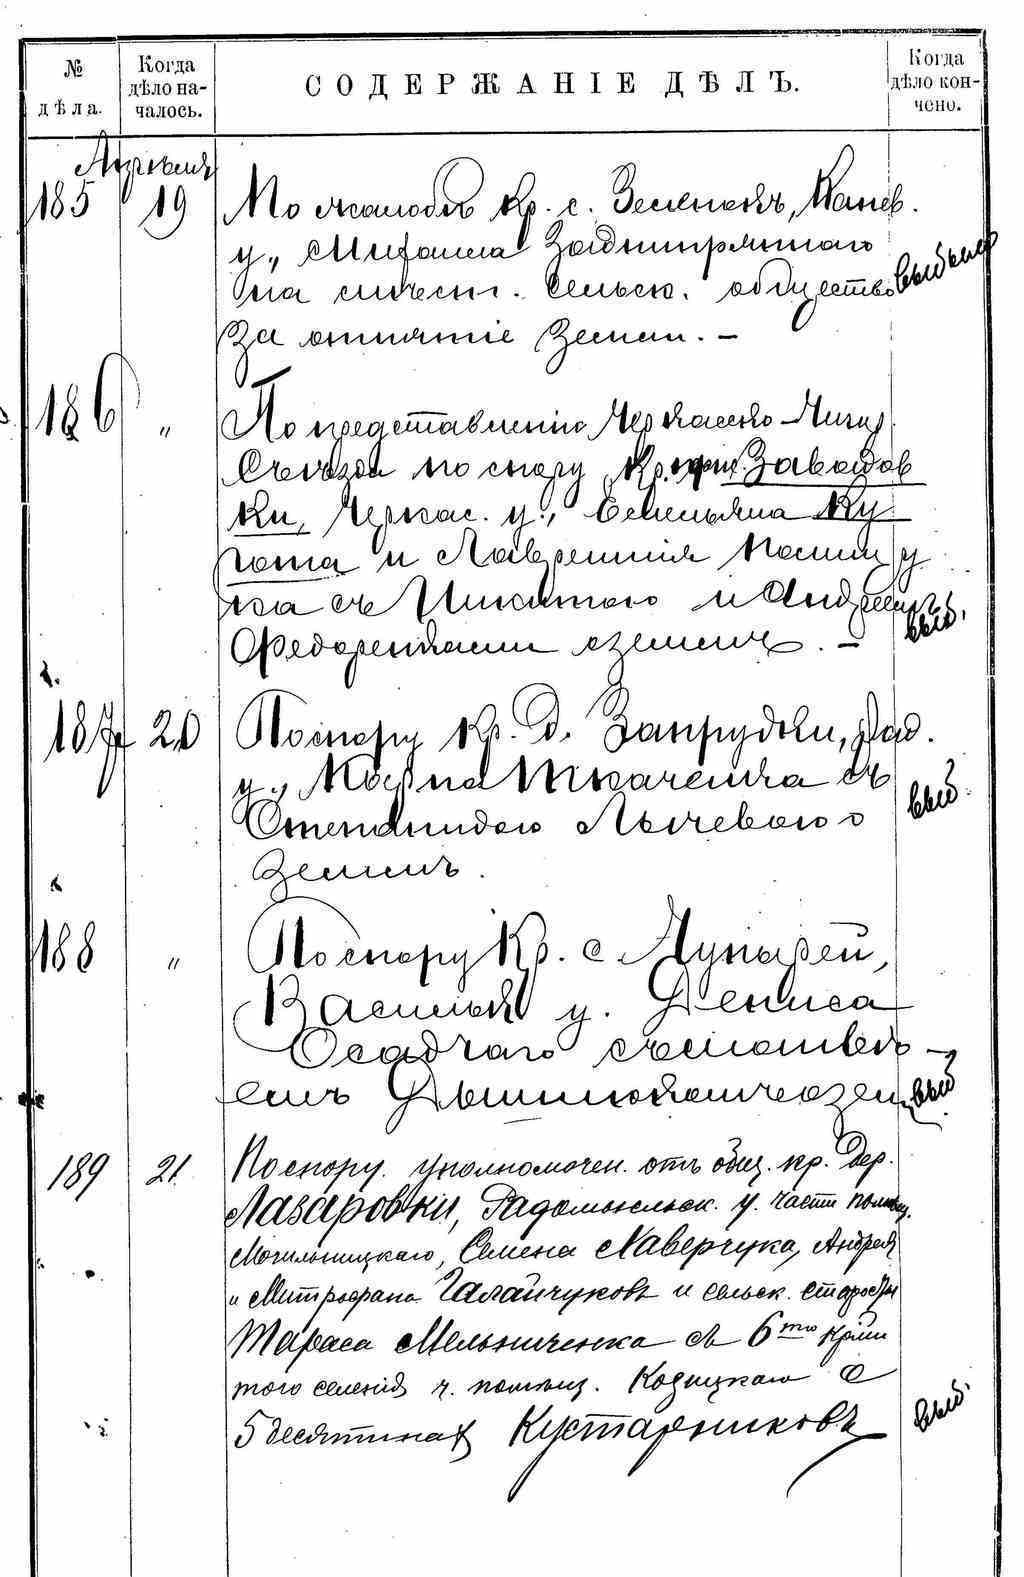 № дѣла.
Когда дѣло на-
чалось.
СОДЕРЖАНІЕ ДѢЛЪ.
Когда дѣло кон-
чено.
Апрѣля
185 19 По жалобѣ кр. с. Зеленекъ, Канев.
у., Михаила Заднипрянаго
на сельск. общество
за отнятіе земли. —
выбыл
186 " По представленію Черкасско-Чигир.
Съѣзда по спору кр. Заводов
ки, Черкас. у., Емельяна Ку
гота и Лаврентія
ка съ Никитою и Андреемъ
Федоренками о землѣ. —
выб.
187 20 По спору кр. д. Запрудки, Рад.
у., Ткаченка съ
Степанидою Лычевою о
землѣ.
выб.
188 " По спору кр. с.
Васильк. у. Дениса
Осадчаго съ
емъ о зем
выб
189 21. По спору уполномочен. отъ общ. кр. дер.
Лазаровки, Радомысльск. у. части помѣщ.
Могильницкаго, Семена Каверчука, Андрея
и Митрофана Галайчуковъ и сельск. старосты
Тараса Мельниченка съ 6тю кр-ми
того селенія ч. помѣщ. Козицкаго о
5 десятинах кустарниковъ
выб.